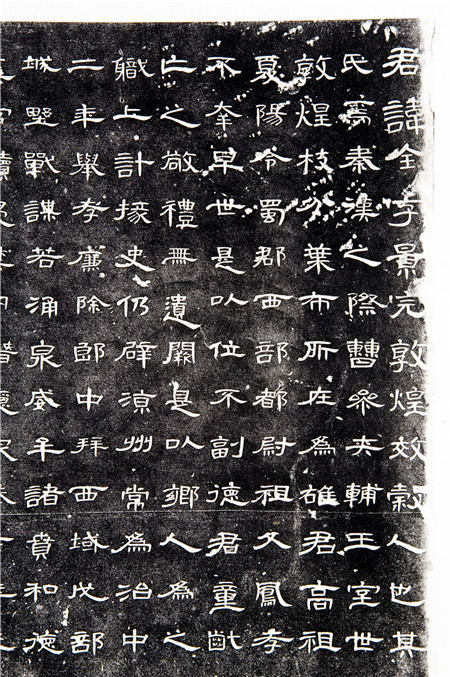 君諱全字景完敦煌效穀人也其
氏焉秦漢之際曹參夾輔王室世
敦煌枝分葉布所在為雄君高祖
夏陽令蜀郡西部都尉祖父鳳孝
不幸早世是以位不副德君童齔
亡之敬禮無遺闕是以鄉人為之
職上計掾史仍辟涼州常為治中
二年舉孝廉除郎中拜西域戊部
城野戰謀若涌泉威牟諸賁和德